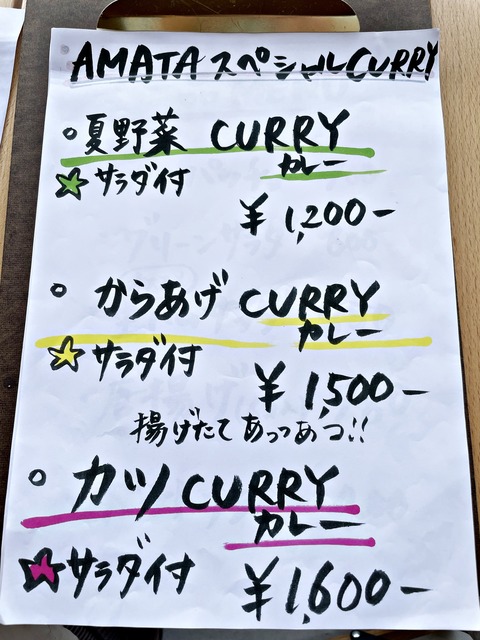 AMATA スペシャルCURRY
夏野菜 CURRY
カレー
サラダ付
¥1,200-
からあげ CURRY
カレー
サラダ付
¥1,500-
揚げたて あっつあつ!!
カツCURRY
カレー
サラダ付
¥1,600-